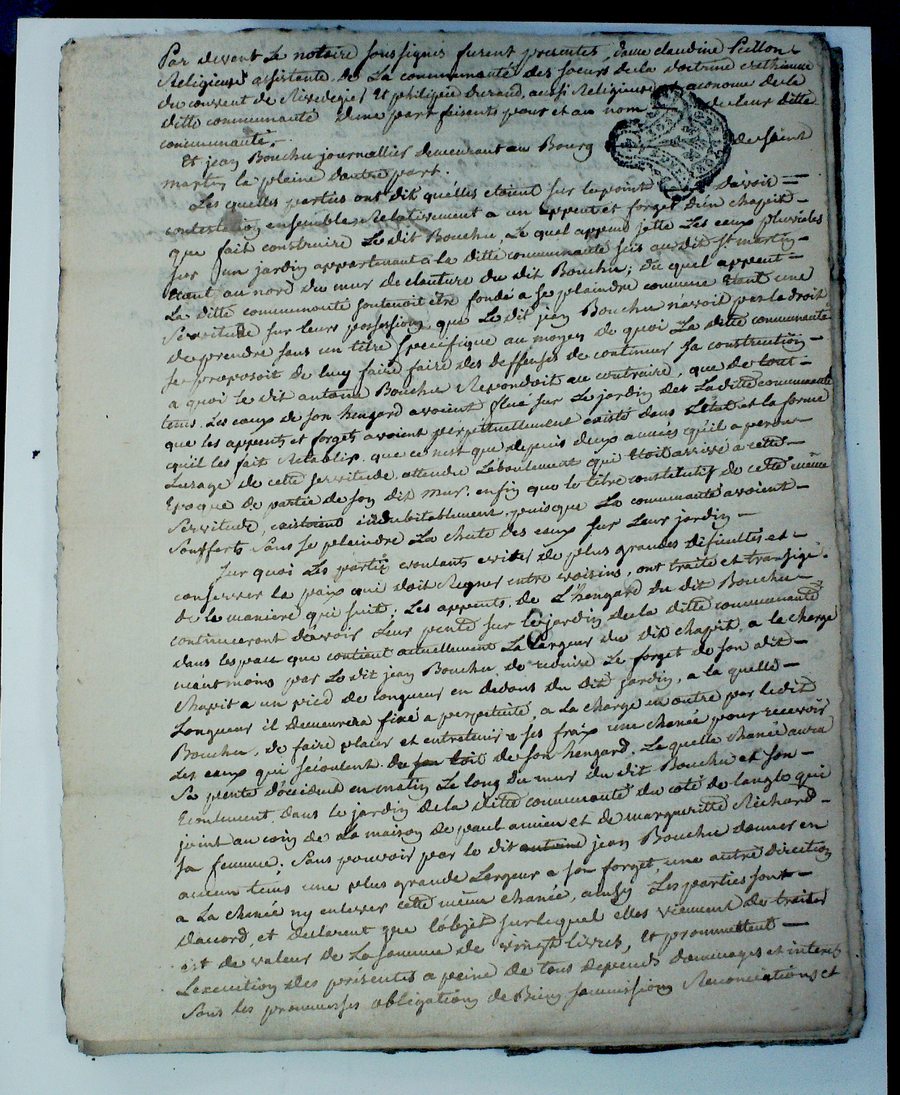 Par devant Le notaire soussignés furent presentes, dame claudine
Religieuse assistante de La communauté des soeurs de la doctrine chretienne
du couvent de Rivedegier Et philipine durand, aussi Religieuse œconome de la
ditte communauté d'une part faisents pour et au nom de leur ditte
communauté.
Et jean Bouchu journallier demeurant au Bourg de saint
martin la plaine d'autre part.
Les quelles parties ont dit qu'elles etoient sur le point d'avoir
contestation ensemble Relativement a un appent et forget d'un chapit
que fait construire Le dit Bouchu, Le quel appent jette Les eaux pluviales
sur un jardin appartenant à la ditte communauté scis au dit St martin
Etant au nord du mur de cloture du dit Bouchu; du quel appent
La ditte communauté soutenoit etre fondé a se plaindre comme Etant une
Servitude sur leurs possessions que Le dit jean Bouchu n'avoit pas le droit
de prendre sans un titre specifique au moyen de quoi La ditte communauté
se proposoit de luy faire faire des deffenses de continuer sa construction
a quoi le dit antoine Bouchu Repondoit au contraire, que de tout
tems Les eaux de son hengard avoient flué sur Le jardin de La ditte communauté
que les appents et forgets avoient perpetuellement existé dans L'état et la forme
qu'il les fait Retablir. que ce n'est que depuis deux années qu'il a perdu
L'usage de cette servitude, attendu L'eboulement qui Etoit arrivé a cette
Epoque de partie de son dit mur. enfin que le titre constitutif de cette même
Servitude, existoient indubitablement, puisque La communauté avoient
soufferts sans se plaindre La chute des eaux sur Leur jardin
Sur quoi Les parties voulants eviter de plus grandes dificultés et
conserver La paix qui doit Regner entre voisins, ont traité et transigé
de la maniere qui suit; Les appents de L'hengard du dit Bouchu
continueront d'avoir Leur pente sur Le jardin de la ditte communauté
dans l'espace que contient actuellement La largeur du dit chapit a la charge
neant moins par Le dit jean Bouchu de reduire Le forget de son dit
chapit a un pied de longueur en dedans du dit jardin, a la quelle
Longueur il demeurera fixé a perpetuité, a La charge en outre par ledit
Bouchu, de faire placer et entretenir a ses fraix une chanée pour recevoir
Les eaux qui s'écoulent de son toit de son hengard. La quelle chanée aura
Sa pente d'occident en matin Le long du mur du dit Bouchu et son
Ecoulement dans le jardin de la ditte communauté du coté de l'angle qui
joint au coin de la maison de paul amieu et de margueritte Richard
sa femme; sans pouvoir par le dit antoine jean Bouchu donner en
aucun tems une plus grande Largeur a son forget, une autre direction
a La chanée ny enlever cette même chanée, ainsy Les parties sont
d'accord, et declarent que l'objet sur lequel elles viennent de traiter
est de valeur de La somme de vingt livres, Et promettent
L'execution des présentes a peine de tous depends dommages et interets
Sous les promesses obligation de Biens soumissions Renonciations et